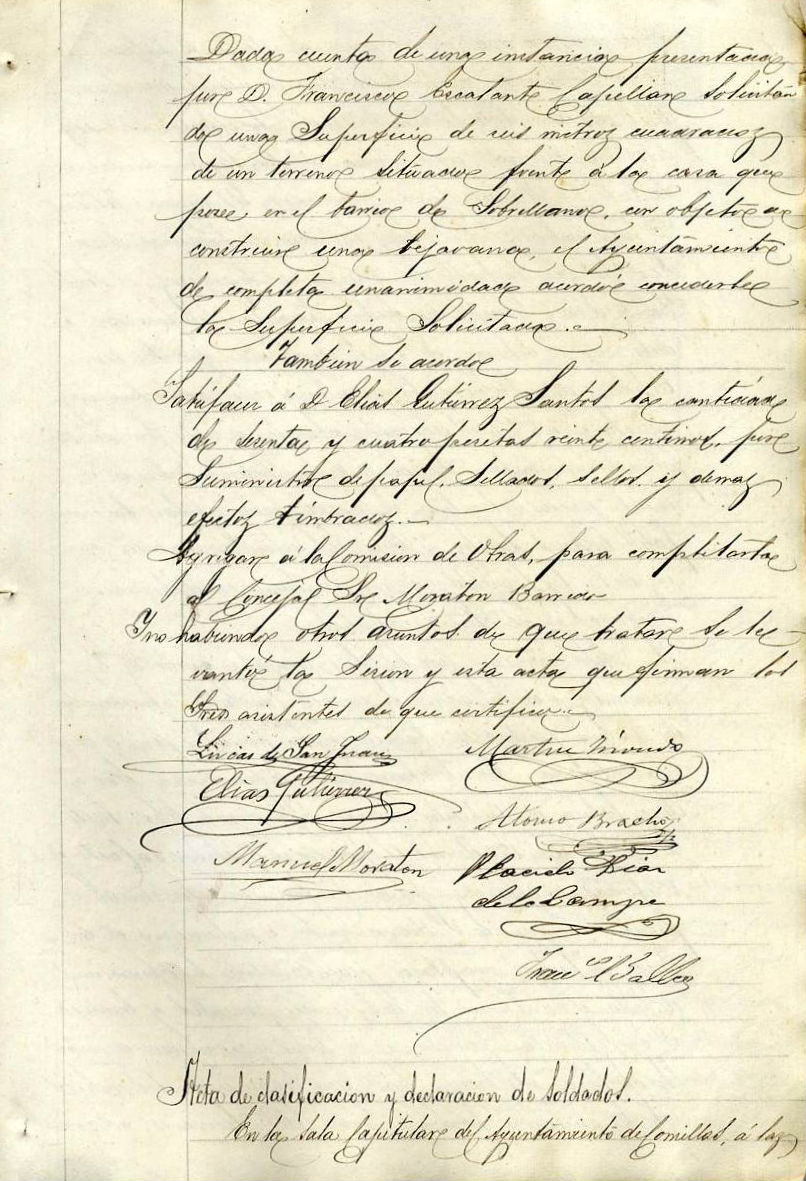 Dada cuenta de una instancia presentada
por D. Francisco Escalante Capellan Solicitan
do una Superficie de seis metros cuadrados
de un terreno situado frente á la casa que
posee en el barrio de Sobrellano, con objeto de
construir una tejavana, el Ayuntamiento
de completa unanimidad acordó concederle
la Superficie Solicitada.
Tambien se acordo
Satisfacer á D Elias Gutiérrez Santos la cantidad
de sesenta y cuatro pesetas veinte centimos, por
Suministro de papel Sellado, sellos y demas
efectos timbrados.
Agregar á la Comision de Obras, para completarla
al Concejal Sr Moraton Barredo
Y no habiendo otros asuntos de que tratar se le
vantó la Sesion y esta acta que firman los
Sres asistentes de que certifico.
Lucas de San Juan
Martin
Elias Gutiérrez
Bracho
Manuel Moraton
Placido Diaz
de la Campa
Acta de clasificacion y declaracion de soldados.
En la Sala Capitular del Ayuntamiento de Comillas, á las